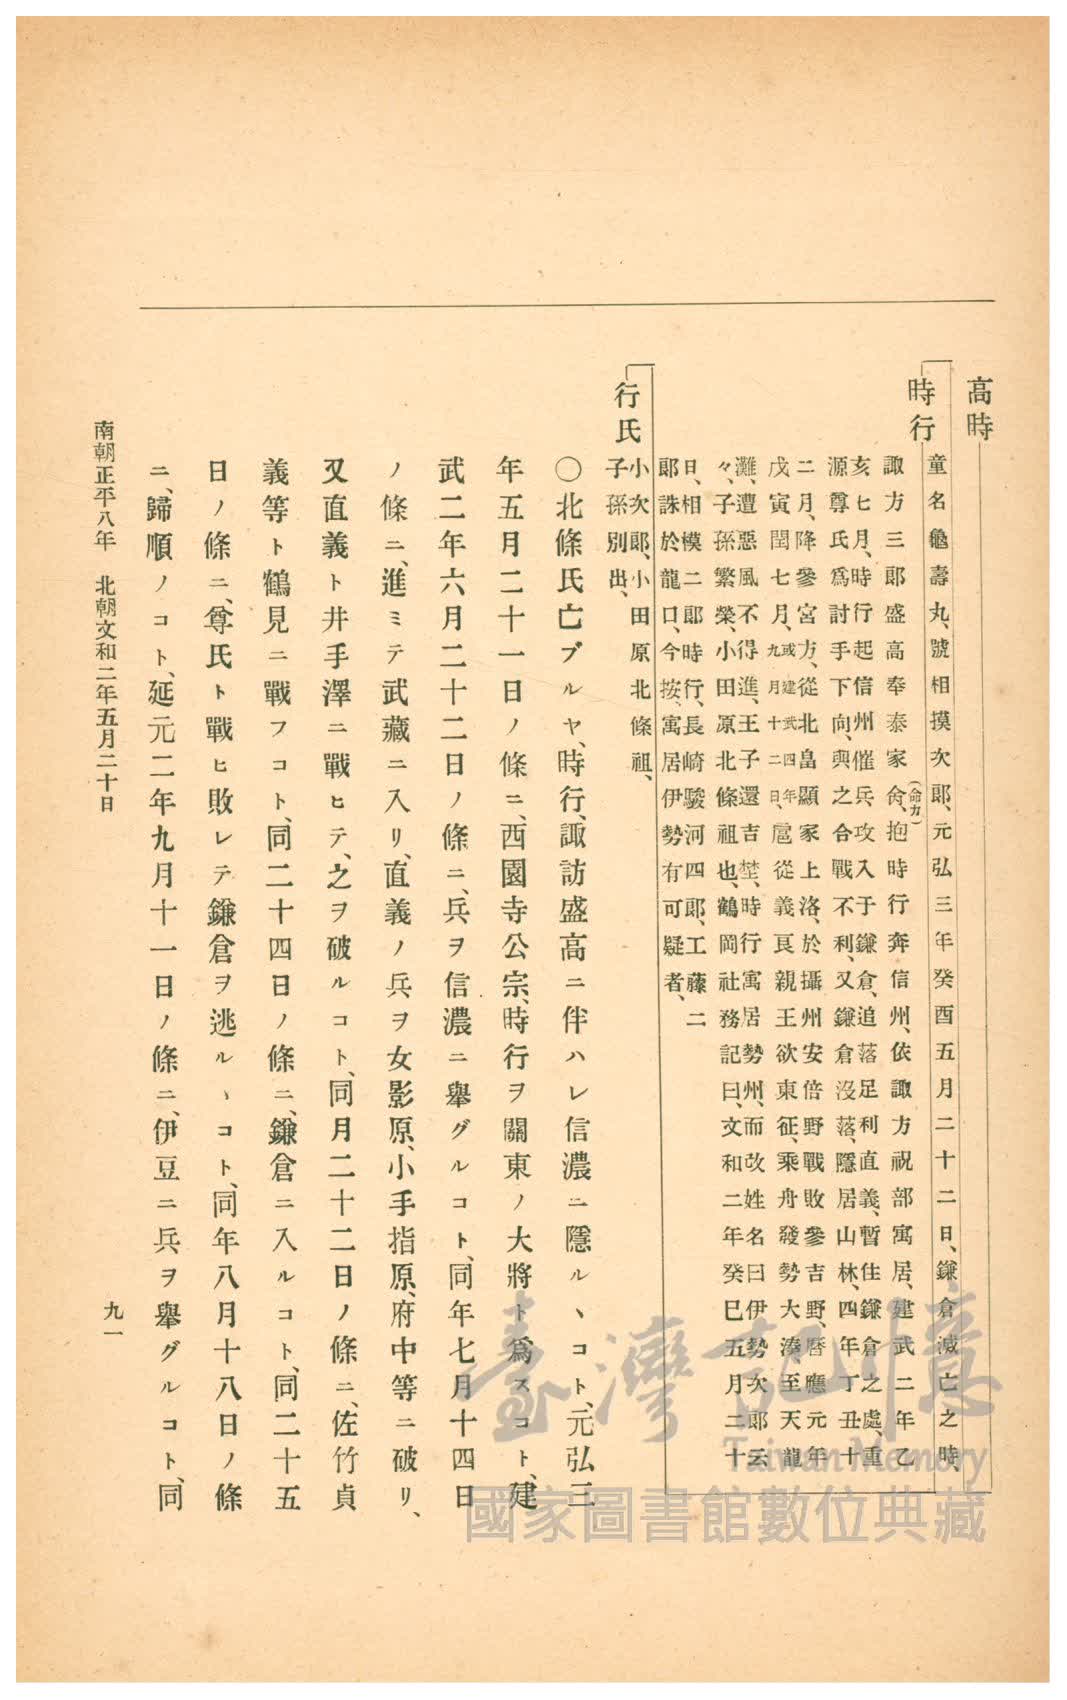 高時
時行
童名龜壽丸、號相摸次郎、元弘三年癸酉五月二十二日、鎌倉滅亡之時、
諏方三郎盛高奉泰家舍、(命カ)抱時行奔信州、依諏方祝部寓居、建武二年乙
亥七月、時行起信州催兵、攻入于鎌倉、追落足利直義、暫住鎌倉之處、重
源尊氏爲討手下向、與之合戰不利、又鎌倉沒落、隱居山林、四年丁丑十
二月、降參宮方、從北畠顯家上洛、於攝州安倍野戰敗參吉野、曆應元年
戊寅閏七月、或建武四年九月十二日、扈從義良親王欲東征、乘舟發勢大湊至天龍
灘、遭惡風不得進、王子還吉埜、時行寓居勢州、而改姓名曰伊勢次郎云
々、子孫繁榮、小田原北條祖也、鶴岡社務記曰、文和二年癸巳五月二十
日、相模二郎時行、長崎駿河四郎、工藤二
郎誅於龍口、今按、寓居伊勢有可疑者、
行氏
小次郎、小田原北條祖、
子孫別出、
〇北條氏亡ブルヤ、時行、諏訪盛高ニ伴ハレ信濃ニ隱ルヽコト、元弘三
年五月二十一日ノ條ニ、西園寺公宗、時行ヲ關東ノ大將ト爲スコト、建
武二年六月二十二日ノ條ニ、兵ヲ信濃ニ舉グルコト、同年七月十四日
ノ條ニ、進ミテ武藏ニ入リ、直義ノ兵ヲ女影原、小手指原、府中等ニ破リ、
又直義ト井手澤ニ戰ヒテ、之ヲ破ルコト、同月二十二日ノ條ニ、佐竹貞
義等ト鶴見ニ戰フコト、同二十四日ノ條ニ、鎌倉ニ入ルコト、同二十五
日ノ條ニ、尊氏ト戰ヒ敗レテ鎌倉ヲ逃ルヽコト、同年八月十八日ノ條
ニ、歸順ノコト、延元二年九月十一日ノ條ニ、伊豆ニ兵ヲ舉グルコト、同
南朝正平八年　北朝文和二年五月二十日
九一
臺灣記憶
Taiwan Memory
國家圖書館數位典藏